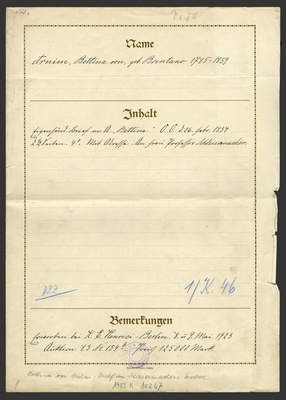 Name
Arnim, Bettina von, geb. Brentano 1785-1859
Inhalt
Eigenhänd. Brief m. U. „Bettina". O. O. d. 26. febr. 1834
2 Seiten. 4°. Mit Adresse. An frau Professor Schleiermacher.
1/K. 46
Bemerkungen
erworben bei K. E. Henrici - Berlin. 8. u 9. Mai 1923
Auktion 83 Preis 125000 Mark
Bettina von Arnim